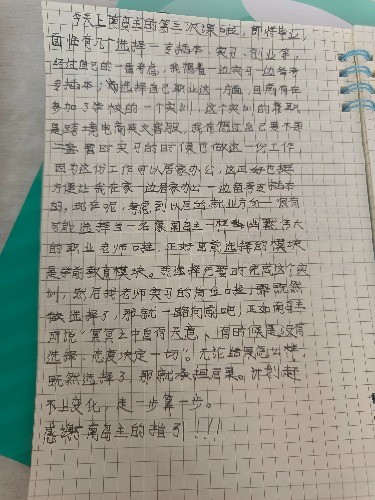 今天上南岛主的第三次课啦，即将毕业，
面临有几个选择一专插本、实习、创业等，
经过自己的一番考虑，我想着一边实习一边备考
专插本，而选择自己职业这一方面，目前有在
参加了学校的一个实训，这个实训的兼职
是跨境电商英文客服，我有想过自己要不要
暂时实习的时候也做这一份工作
因为这份工作可以居家办公，这正好也挺
方便让我在家一边居家办公一边备考专插本
的，现在呢，考虑到以后的就业方向一很有
可能选择当一名像南岛主一样幽默伟大
的职业老师口哇，正好里常选择的模块
是学前教育模块。我选择把暂时完成这个实
训，然后找老师实习的岗位口哇，哪既然
做选择了，那就一路向前吧，正如南岛主
所说"冥冥之中自有天意、有时候是没有
选择，态度决定一切"。无论结果怎么样
既然选择了，那就承担后果。计划赶
不上变化，走一步算一步。
感谢南岛主的指引!!!